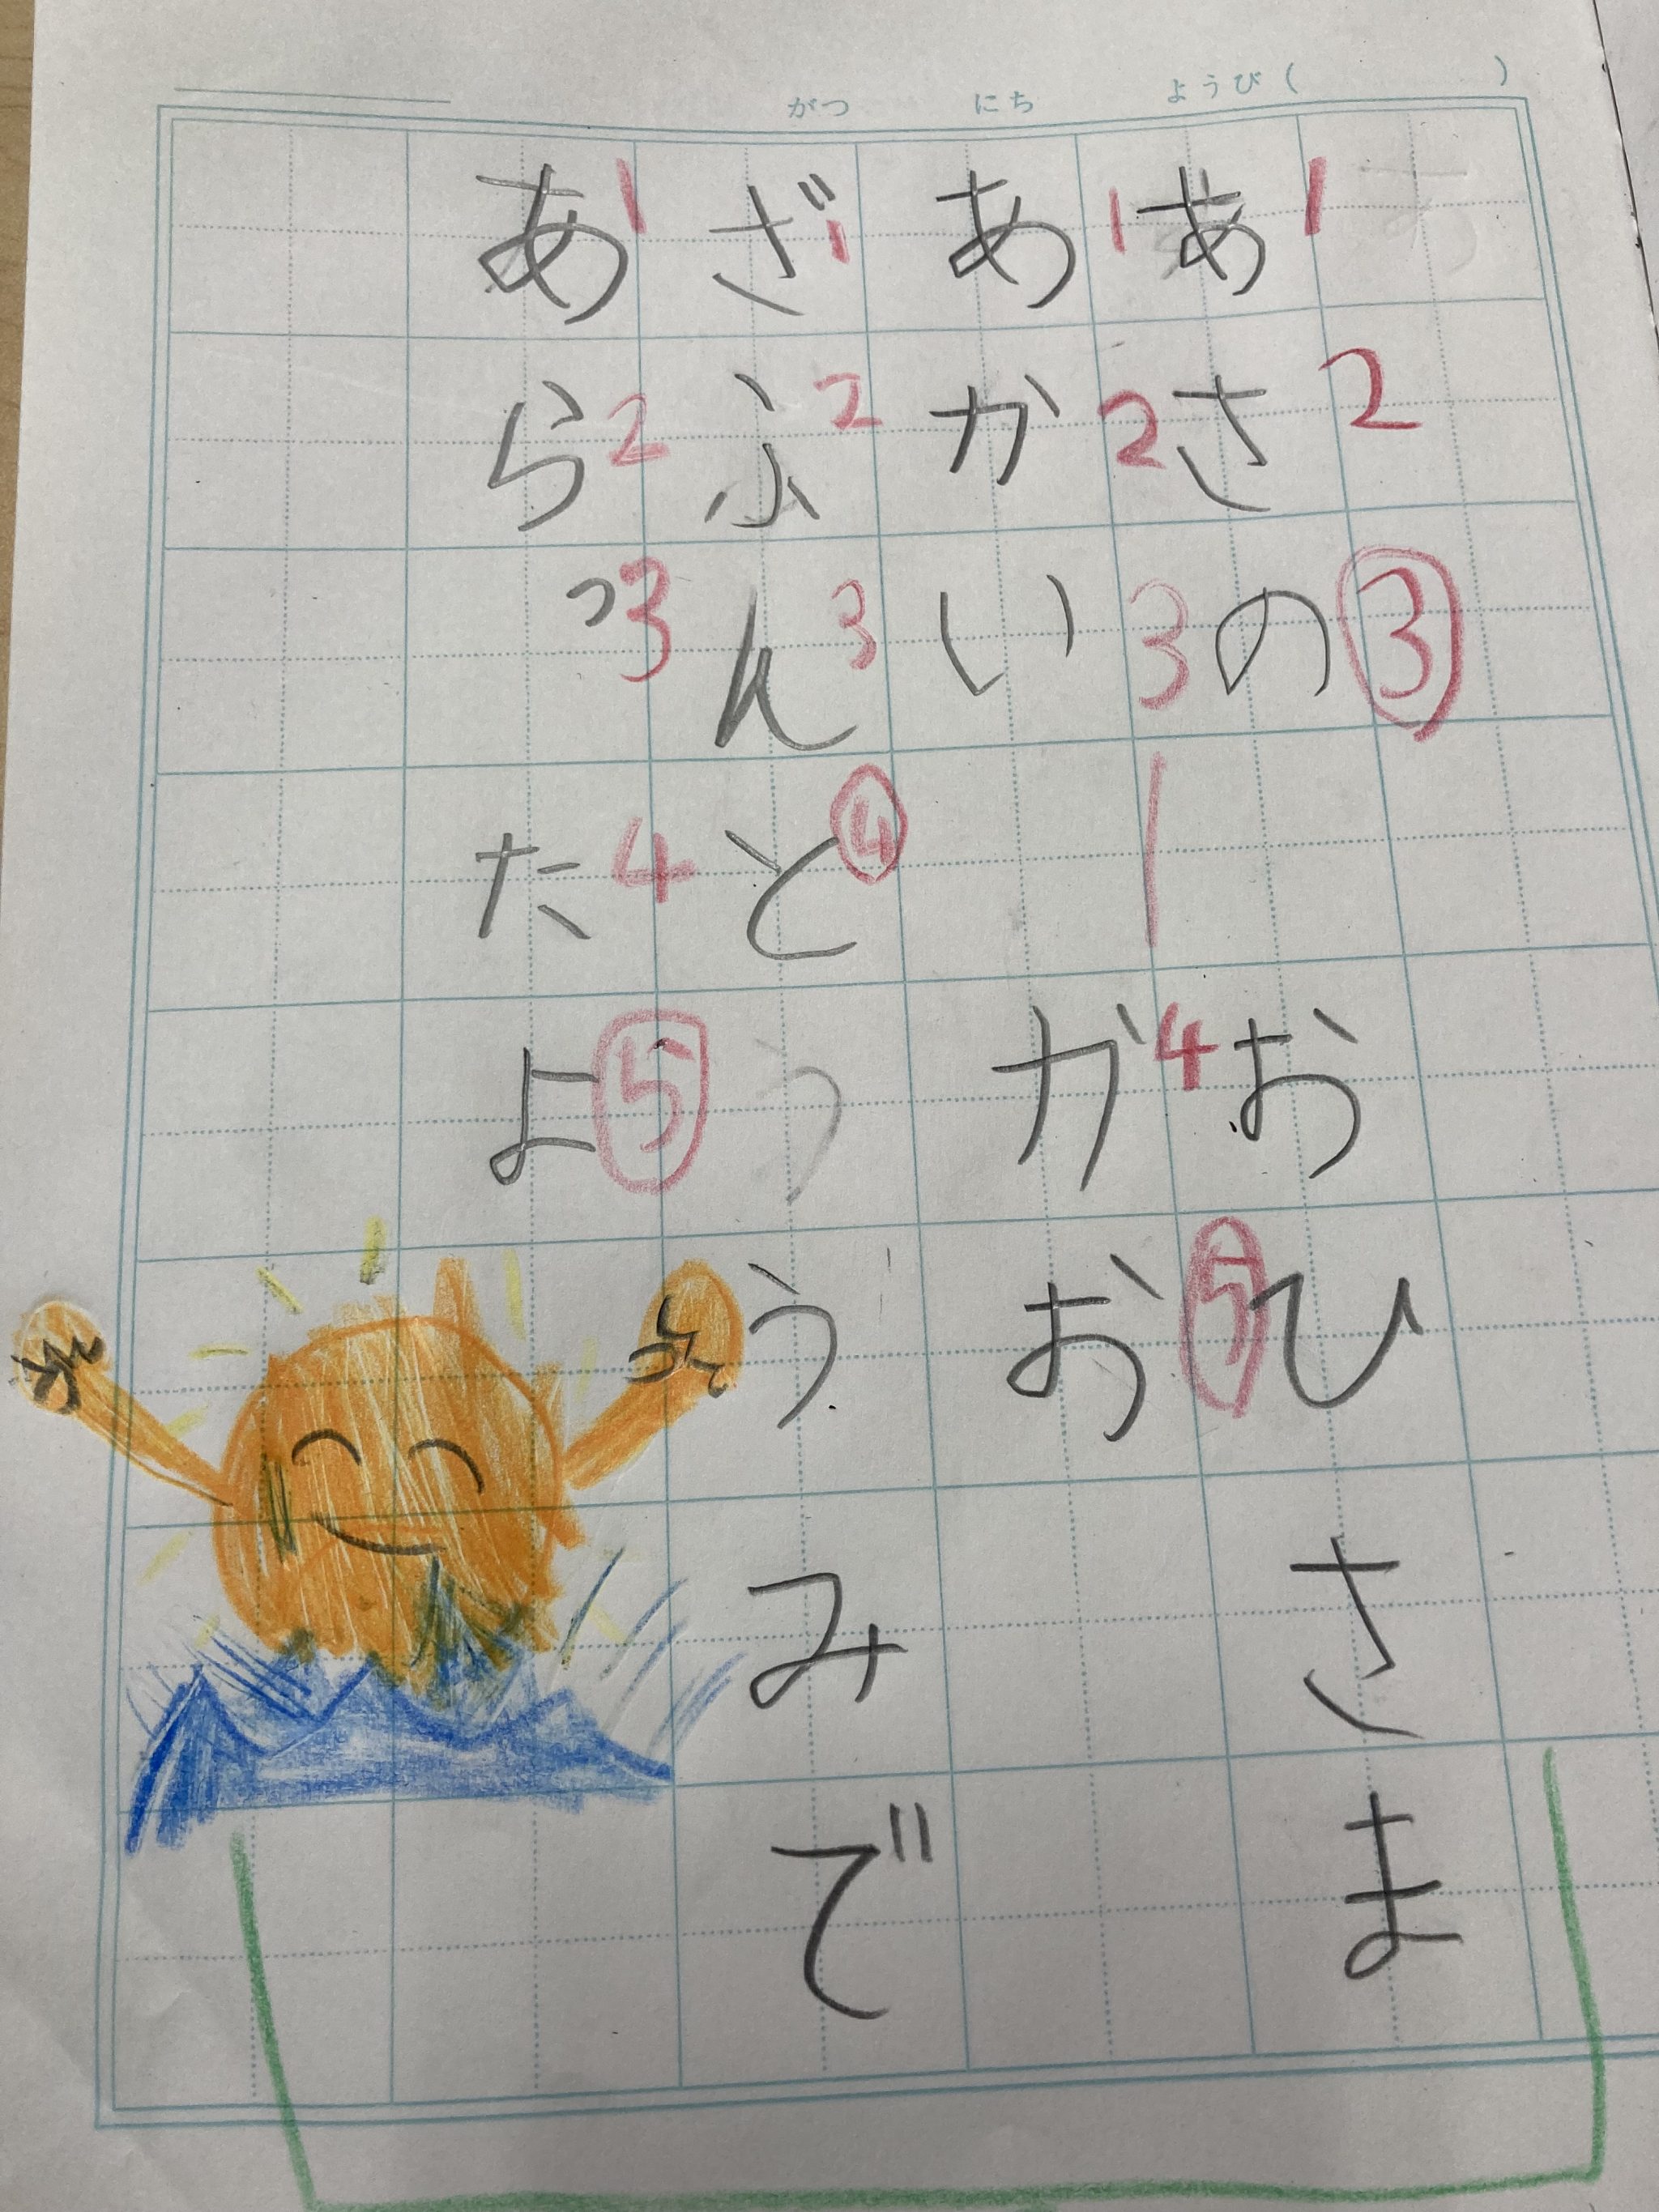 がつ にち ようび( )
あさの おひさま
あかい かお
ざぶんと うみで
あらったよ
1 2 ③
1 2 3 4 ⑤
1 2 3 ④
1 2 3 4 ⑤